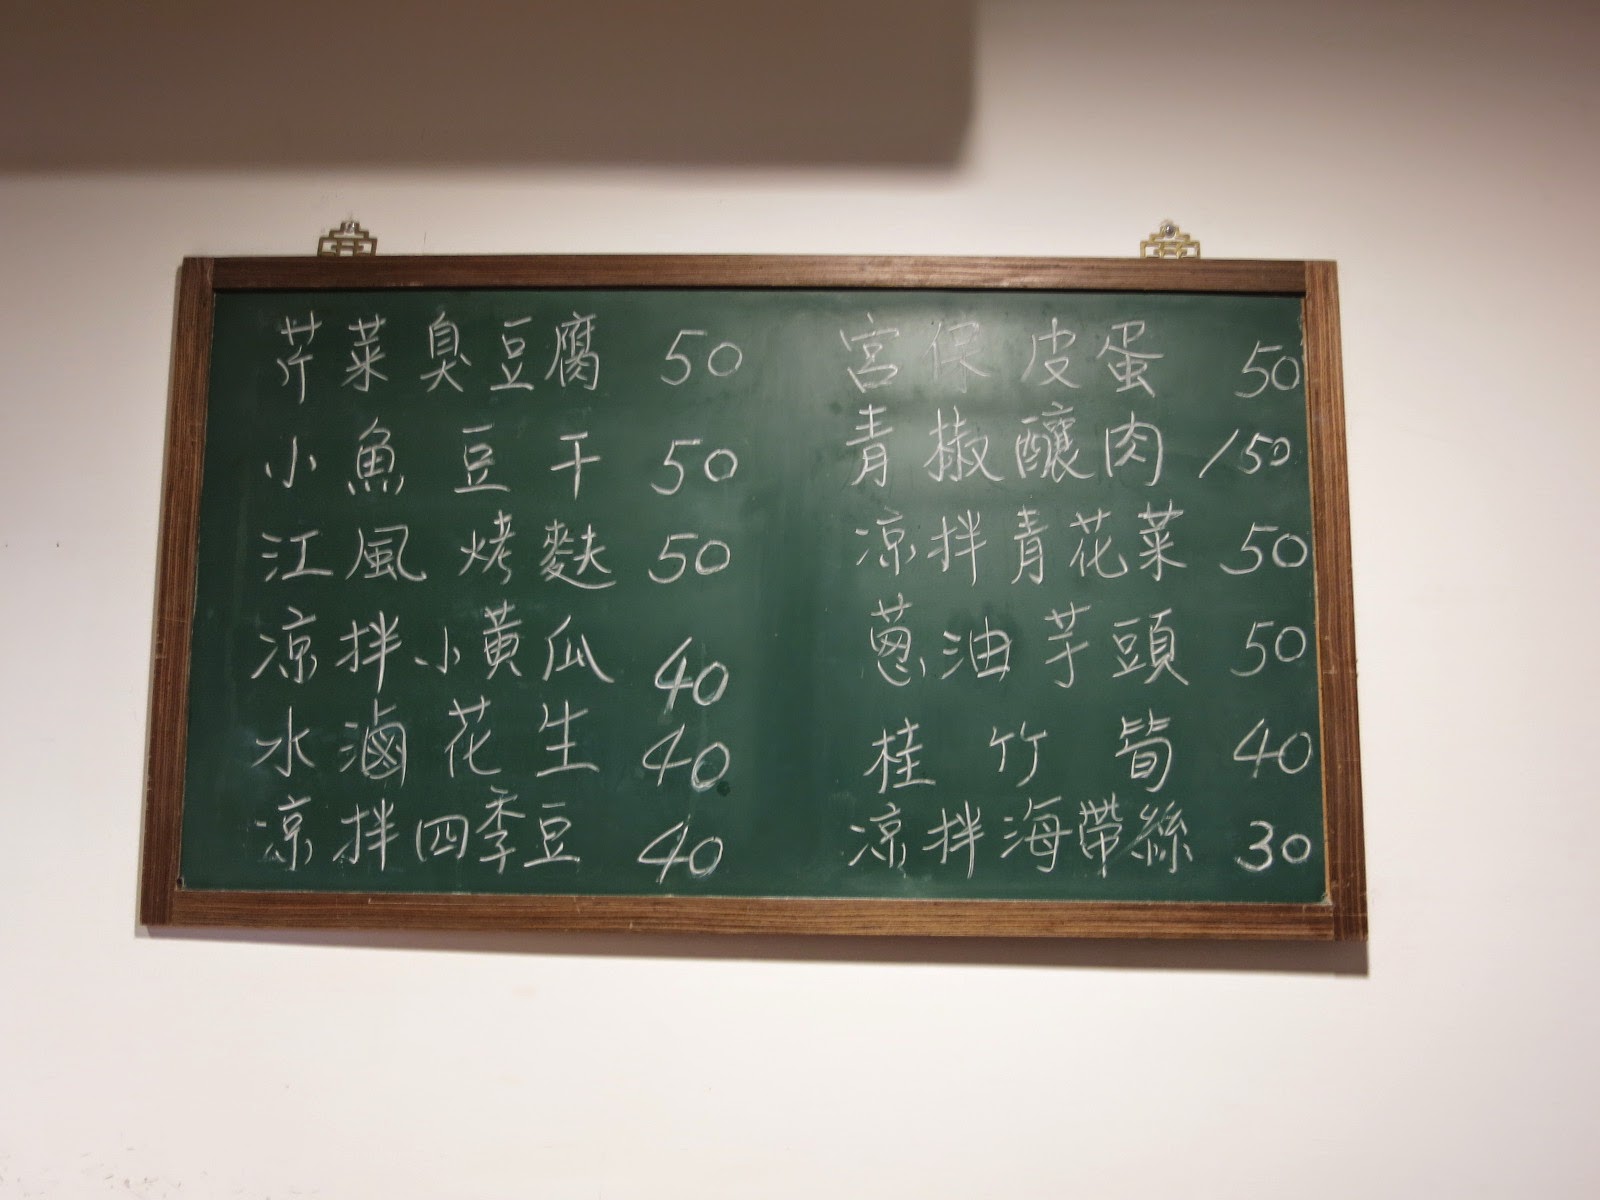 芹菜臭豆腐 50
小魚豆干 50
江風烤麩 50
涼拌小黃瓜 40
水滷花生 40
涼拌四季豆 40
宮保皮蛋 50
青椒釀肉 150
涼拌青花菜 50
蔥油芋頭 50
桂竹筍 40
涼拌海帶絲 30